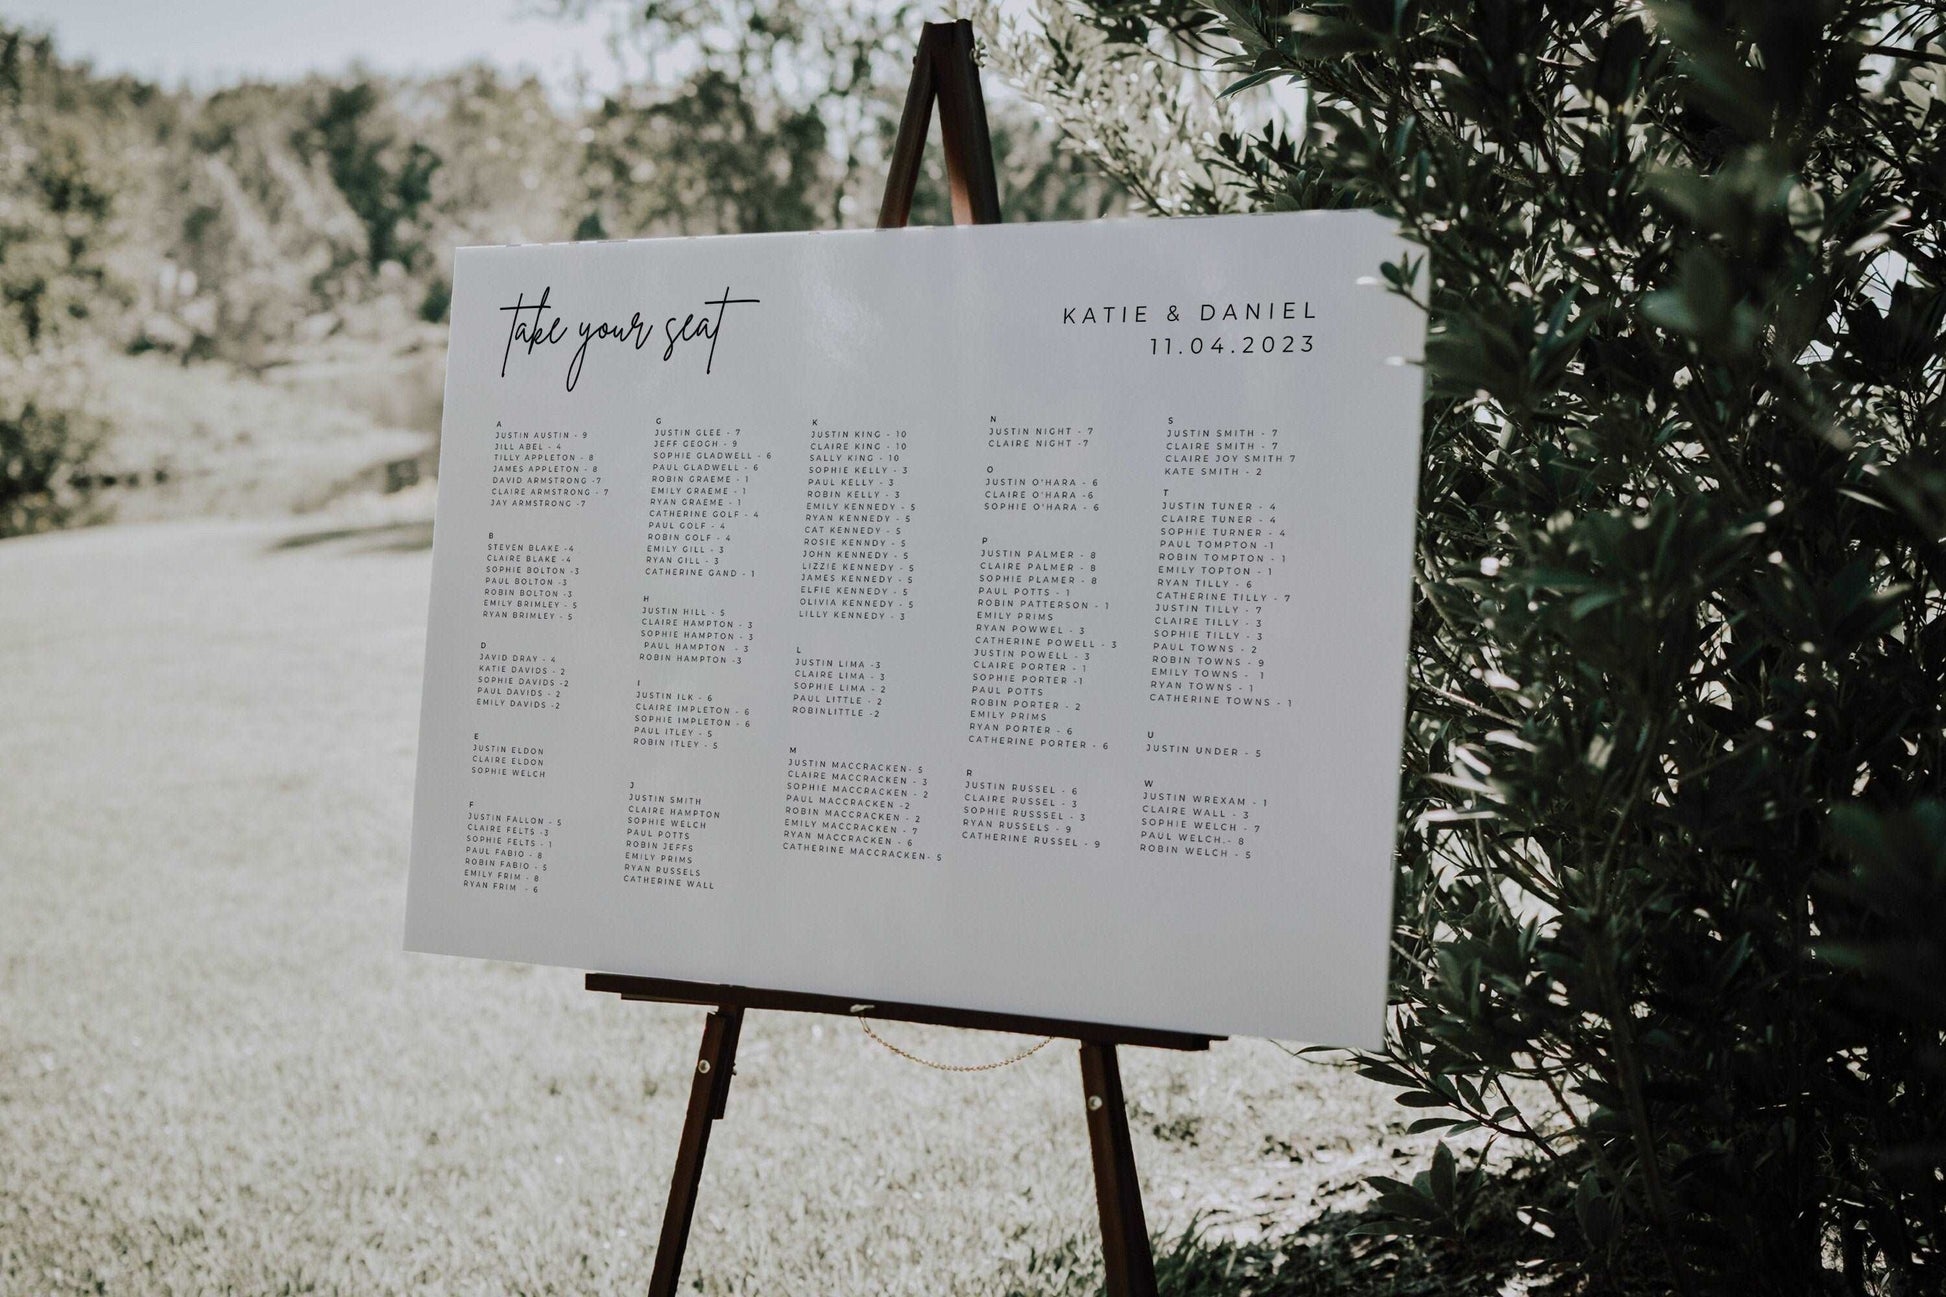 take your seat
KATIE & DANIEL
11.04.2023
A
JUSTIN AUSTIN - 9
JILL ABEL - 4
TILLY APPLETON - 8
JAMES APPLETON - 8
DAVID ARMSTRONG -7
CLAIRE ARMSTRONG - 7
JAY ARMSTRONG -7
B
STEVEN BLAKE -4
CLAIRE BLAKE -4
SOPHIE BOLTON -3
PAUL BOLTON -3
ROBIN BOLTON -3
EMILY BRIMLEY - 5
RYAN BRIMLEY - 5
D
JAVID DRAY - 4
KATIE DAVIDS - 2
SOPHIE DAVIDS -2
PAUL DAVIDS - 2
EMILY DAVIDS -2
E
JUSTIN ELDON
CLAIRE ELDON
SOPHIE WELCH
F
JUSTIN FALLON - 5
CLAIRE FELTS -3
SOPHIE FELTS - 1
PAUL FABIO - 8
ROBIN FABIO - 5
EMILY FRIM - 8
RYAN FRIM - 6
G
JUSTIN GLEE - 7
JEFF GEOGH - 9
SOPHIE GLADWELL - 6
PAUL GLADWELL - 6
ROBIN GRAEME - 1
EMILY GRAEME - 1
RYAN GRAEME - 1
CATHERINE GOLF - 4
PAUL GOLF - 4
ROBIN GOLF - 4
EMILY GILL - 3
RYAN GILL - 3
CATHERINE GAND - 1
H
JUSTIN HILL - 5
CLAIRE HAMPTON - 3
SOPHIE HAMPTON - 3
PAUL HAMPTON - 3
ROBIN HAMPTON -3
I
JUSTIN ILK - 6
CLAIRE IMPLETON - 6
SOPHIE IMPLETON - 6
PAUL ITLEY - 5
ROBIN ITLEY - 5
J
JUSTIN SMITH
CLAIRE HAMPTON
SOPHIE WELCH
PAUL POTTS
ROBIN JEFFS
EMILY PRIMS
RYAN RUSSELS
CATHERINE WALL
K
JUSTIN KING - 10
CLAIRE KING - 10
SALLY KING - 10
SOPHIE KELLY - 3
PAUL KELLY - 3
ROBIN KELLY - 3
EMILY KENNEDY - 5
RYAN KENNEDY - 5
CAT KENNEDY - 5
ROSIE KENNDY - 5
JOHN KENNEDY - 5
LIZZIE KENNEDY - 5
JAMES KENNEDY - 5
ELFIE KENNEDY - 5
OLIVIA KENNEDY - 5
LILLY KENNEDY - 3
L
JUSTIN LIMA -3
CLAIRE LIMA - 3
SOPHIE LIMA - 2
PAUL LITTLE - 2
ROBINLITTLE -2
M
JUSTIN MACCRACKEN- 5
CLAIRE MACCRACKEN - 3
SOPHIE MACCRACKEN - 2
PAUL MACCRACKEN -2
ROBIN MACCRACKEN - 2
EMILY MACCRACKEN - 7
RYAN MACCRACKEN - 6
CATHERINE MACCRACKEN- 5
N
JUSTIN NIGHT - 7
CLAIRE NIGHT -7
O
JUSTIN O'HARA - 6
CLAIRE O'HARA -6
SOPHIE O'HARA - 6
P
JUSTIN PALMER - 8
CLAIRE PALMER - 8
SOPHIE PLAMER - 8
PAUL POTTS - 1
ROBIN PATTERSON - 1
EMILY PRIMS
RYAN POWWEL - 3
CATHERINE POWELL - 3
JUSTIN POWELL - 3
CLAIRE PORTER - 1
SOPHIE PORTER -1
PAUL POTTS
ROBIN PORTER - 2
EMILY PRIMS
RYAN PORTER - 6
CATHERINE PORTER - 6
R
JUSTIN RUSSEL - 6
CLAIRE RUSSEL - 3
SOPHIE RUSSSEL - 3
RYAN RUSSELS - 9
CATHERINE RUSSEL - 9
S
JUSTIN SMITH - 7
CLAIRE SMITH - 7
CLAIRE JOY SMITH 7
KATE SMITH - 2
T
JUSTIN TUNER - 4
CLAIRE TUNER - 4
SOPHIE TURNER - 4
PAUL TOMPTON -1
ROBIN TOMPTON - 1
EMILY TOPTON - 1
RYAN TILLY - 6
CATHERINE TILLY - 7
JUSTIN TILLY - 7
CLAIRE TILLY - 3
SOPHIE TILLY - 3
PAUL TOWNS - 2
ROBIN TOWNS - 9
EMILY TOWNS - 1
RYAN TOWNS - 1
CATHERINE TOWNS - 1
U
JUSTIN UNDER - 5
W
JUSTIN WREXAM - 1
CLAIRE WALL - 3
SOPHIE WELCH - 7
PAUL WELCH.- 8
ROBIN WELCH - 5